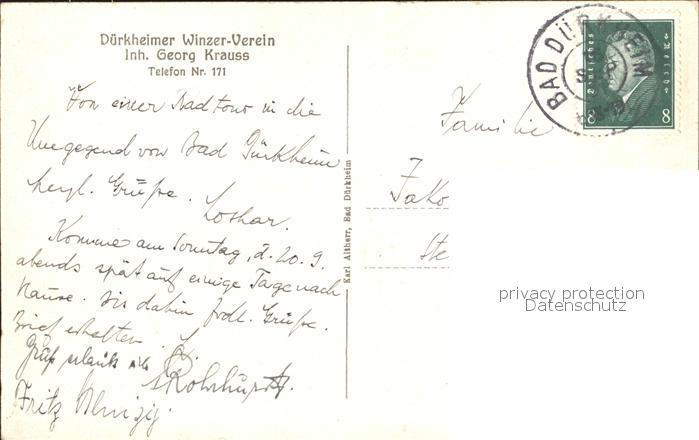 Dürkheimer Winzer-Verein
Inh. Georg Krauss
Telefon Nr. 171
Von einer Radtour in die
Umgegend von Bad Dürkheim
herzl. Grüße.
Lothar.
Komme am Sonntag, d. 20. 9.
abends spät auf einige Tage nach
Hause. Bis dahin frdl. Grüße.
Brief erhalten. L.
Gruß
Fritz
Karl Altherr, Bad Dürkheim
BAD DÜRKHEIM
Deutsches Reich
8 8
Familie
Jako
Ste
privacy protection
Datenschutz